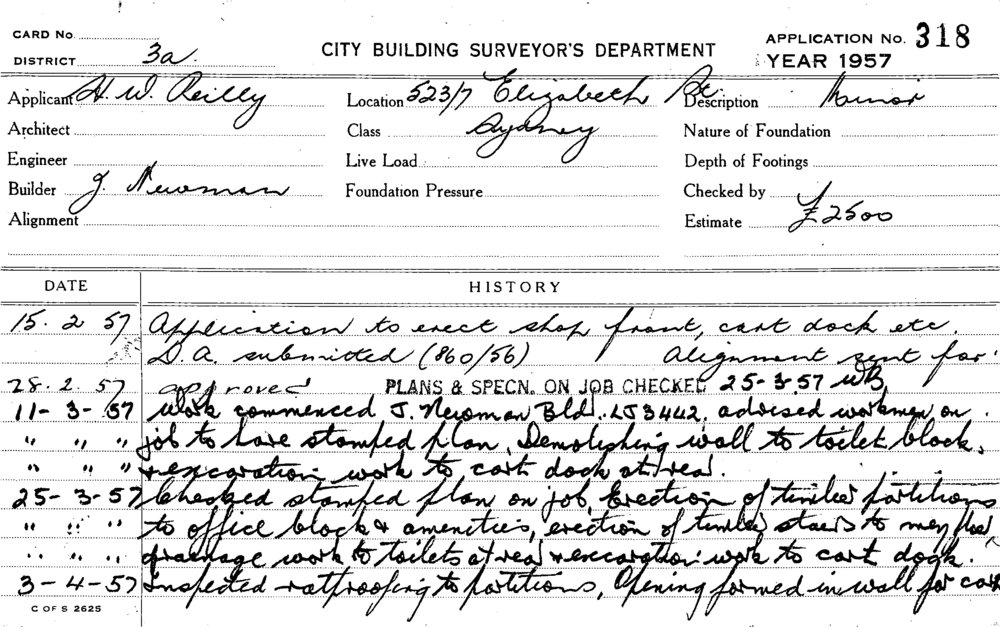 CARD No.
DISTRICT 3a
CITY BUILDING SURVEYOR'S DEPARTMENT
APPLICATION No. 318
YEAR 1957
Applicant H. W. Reilly Location 523/7 Elizabeth St Description Minor
Architect Class Sydney Nature of Foundation
Engineer Live Load Depth of Footings
Builder J. Newman Foundation Pressure Checked by
Alignment Estimate £2500
DATE HISTORY
15. 2 57 Application to erect shop front, cart dock etc.
D.A. submitted (860/56) Alignment sent for.
28. 2. 57 approved PLANS & SPECN. ON JOB CHECKED 25-3-57 WB
11-3-57 Work commenced J. Newman Bld. LJ3442. advised workmen on
" " " job to have stamped plan. Demolishing wall to toilet block.
" " " & excavation work to cart dock at rear.
25-3-57 Checked stamped plan on job. Erection of timber partitions
" " " to office block & amenities, erection of timber stairs to mezz floor
" " " drainage work to toilets at rear & excavation work to cart dock.
3-4-57 Inspected ratproofing to partitions, Opening formed in wall for cart
C OF S 2625